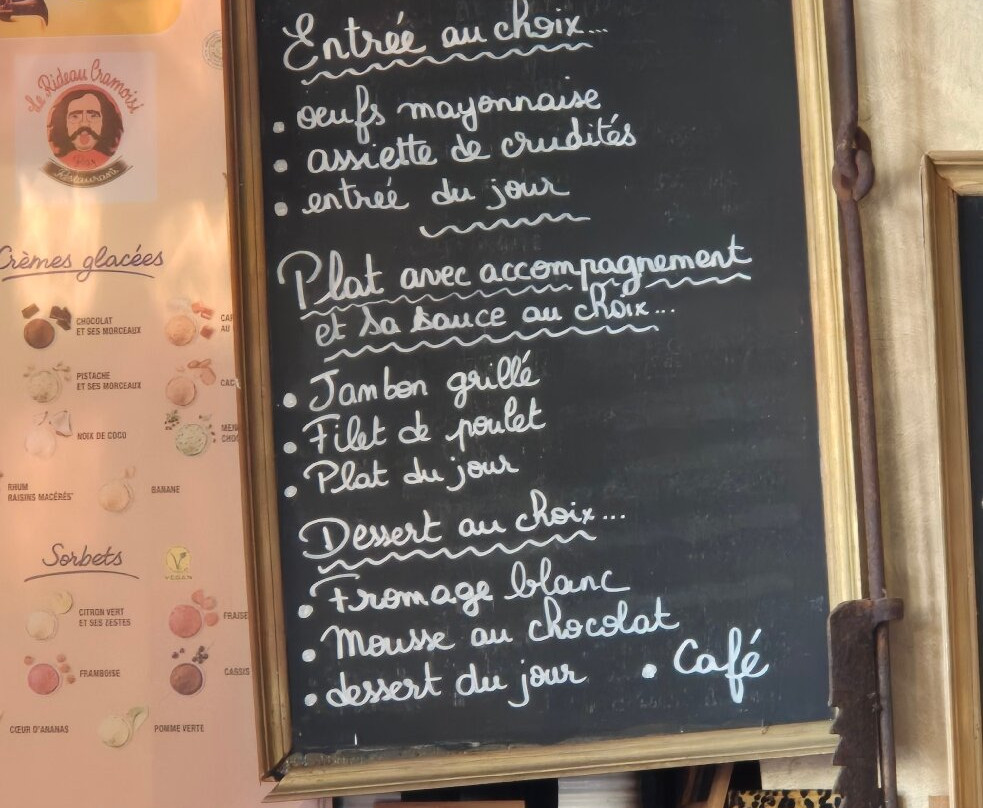 Entrée au choix...
• oeufs mayonnaise
• assiette de crudités
• entrée du jour
Plat avec accompagnement
et sa sauce au choix...
• Jambon grillé
• Filet de poulet
• Plat du jour
Dessert au choix...
• Fromage blanc
• Mousse au chocolat
• dessert du jour • Café
Le Rideau Cramoisi
Bar
Restaurant
Crèmes glacées
CHOCOLAT
ET SES MORCEAUX
PISTACHE
ET SES MORCEAUX
NOIX DE COCO
RHUM
RAISINS MACÉRÉS
BANANE
Sorbets
VEGAN
CITRON VERT
ET SES ZESTES
FRAISE
FRAMBOISE
CASSIS
CŒUR D'ANANAS
POMME VERTE